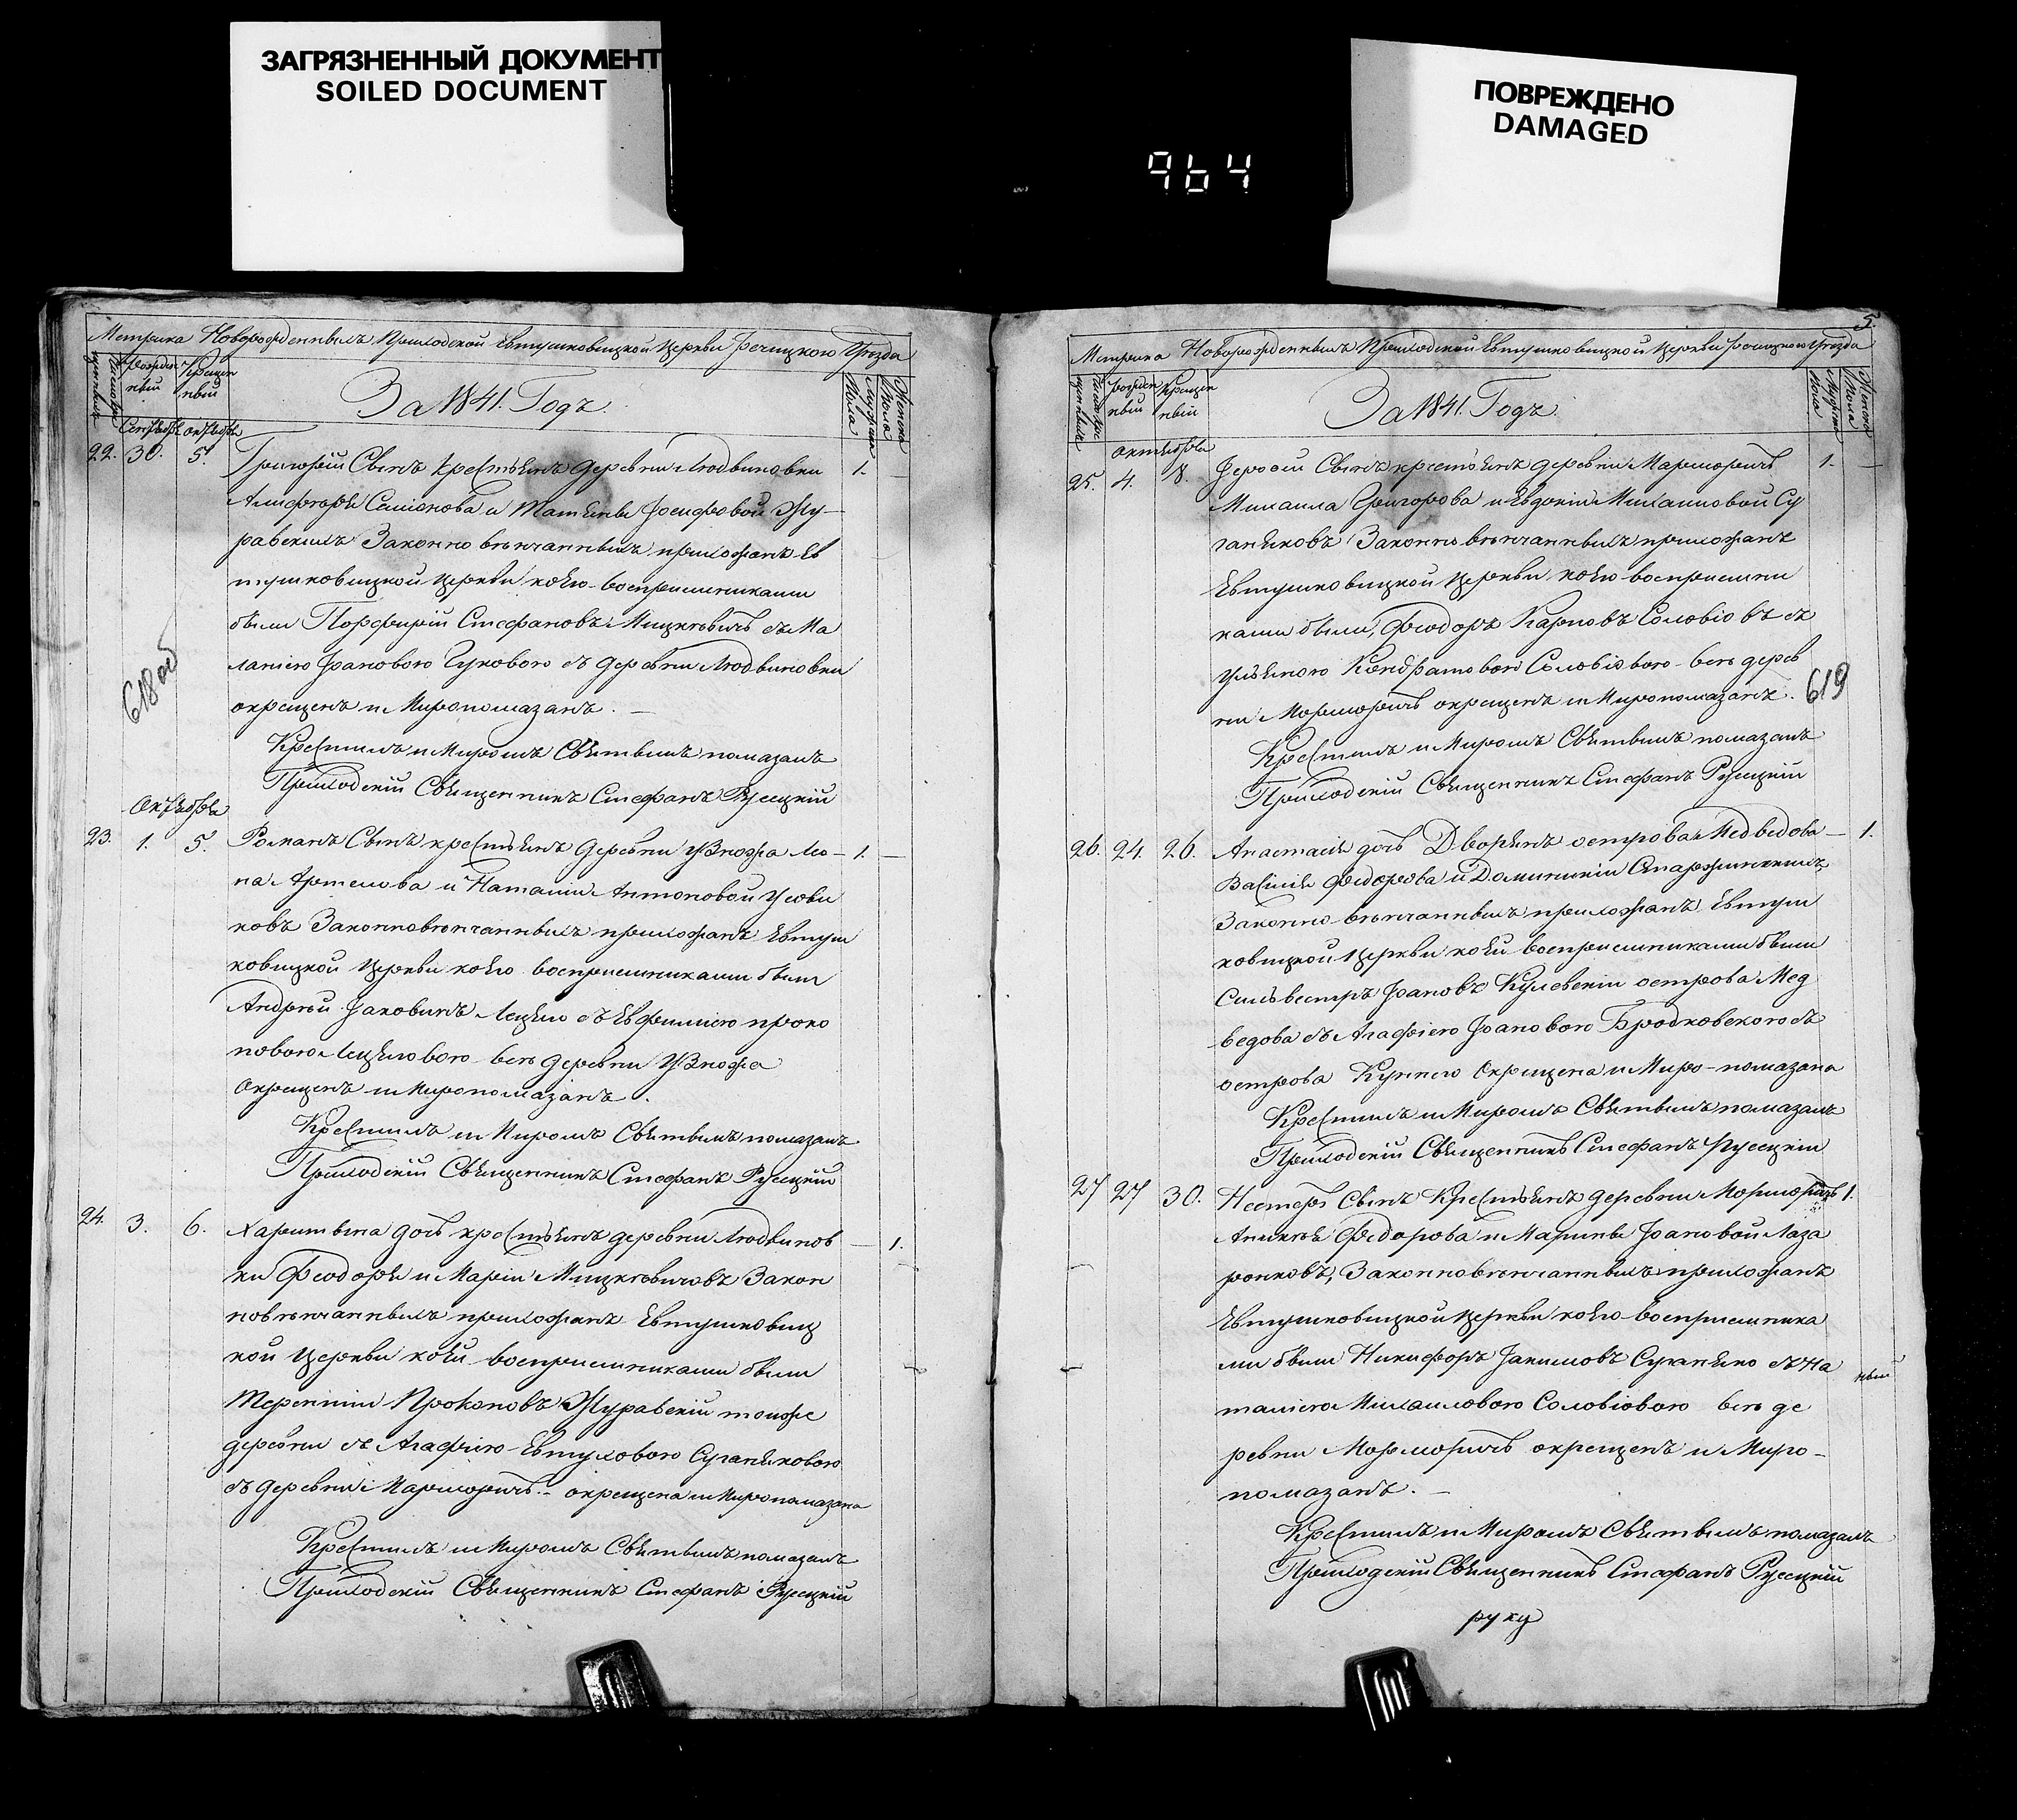 ЗАГРЯЗНЕННЫЙ ДОКУМЕНТ
SOILED DOCUMENT
ПОВРЕЖДЕНО
DAMAGED
964
Метрика Новорожденныхъ Приходской Евтушковицкой Церкви Речицкого Уезда
Рожден
ный
Крещен
ный
За 1841. Годъ.
Мужеска
Пола
Женска
Пола
Септѣвря Октѣбря
22. 30. 5. Григорій Сынъ крестьянъ деревни Людвиновки 1. —
Семіонова и Татіяны Іосифовой Жу-
равскихъ Законно вѣнчанныхъ прихожанъ Ев
тушковицкой Церкви коего воспріемниками
были Порфирій Стефановъ Мицкѣвичъ съ Ма
ланіею Івановою Гуковою съ деревни Людвиновки
окрещенъ и Миропомазанъ. —
Крестилъ и Миромъ Святымъ помазалъ
Приходскій Священникъ Стефанъ Русецкій
618 об
Октября
23. 1. 5. Романъ Сынъ крестьянъ деревни Узножа Лео- 1. —
на Артемова и Наталіи Антоновой Усови
ковъ Законновѣнчанныхъ прихожанъ Евтуш
ковицкой Церкви коего воспріемниками были
Андрѣй Іаковинъ Лецько съ Евфиміею Проко
повою Лецьковою весъ деревни Узножа
Окрещенъ и Миропомазанъ.
Крестилъ и Миромъ Святымъ помазалъ
Приходскій Священникъ Стефанъ Русецкій
24. 3. 6. Харитына дочь крестьянъ деревни Людвинов — 1.
ки Феодора и Маріи Мицкѣвичовъ Закон
новѣнчанныхъ прихожанъ Евтушковиц
кой Церкви коей воспріемниками были
Терентій Прокоповъ Журавскій тойже
деревни съ Агафіею Евтуховою Суганяковою
съ деревни Мармовичъ. - окрещена и Миропомазана
Крестилъ и Миромъ Святымъ помазалъ
Приходскій Священникъ Стефанъ Русецкій
5.
Метрика Новорожденныхъ Приходской Евтушковицкой Церкви Речицкого Уезда
Рожден
ный
Крещен
ный
За 1841. Годъ.
Мужеска
Пола
Женска
Пола
Октября
25. 4. 8. Іерофій Сынъ крестьянъ деревни Мармовичъ 1. —
Михаила Григорова и Евдокіи Михаиловой Су
ганяковъ Законно вѣнчанныхъ прихожанъ
Евтушковицкой Церкви коего воспріемни
ками были, Феодоръ Карповъ Соловіовъ съ
Ульяною Кондратовою Соловіовою весъ дерев
ни Мормовичъ окрещенъ и Миропомазанъ.
619
Крестилъ и Миромъ Святымъ помазалъ
Приходскій Священникъ Стефанъ Русецкій
26. 24. 26. Анастасія дочь Дворянъ острова Медведова — 1.
Василія Федорова и Доминикіи Старжинскихъ
Законно вѣнчанныхъ прихожанъ Евтуш
ковицкой Церкви коей воспріемниками были
Сильвестръ Івановъ Кулевскій острова Мед
ведова съ Агафіею Івановою Бродковскою съ
острова Окрещена и Миро-помазана
Крестилъ и Миромъ Святымъ помазалъ
Приходскій Священникъ Стефанъ Русецкій
27 27 30. Нестеръ Сынъ Крестьянъ деревни Мормовичъ 1.
Аникѣя Федорова и Марины Івановой Лаза
ронковъ, Законновѣнчанныхъ прихожанъ
Евтушковицкой Церкви коего воспріемника
ми были Никифоръ Іакимовъ Суганяко съ На
таліею Михаиловою Соловіовою весъ де
ревни Мормовичъ окрещенъ и Миро-
помазанъ. —
ный
Крестилъ и Миромъ Святымъ помазалъ
Приходскій Священникъ Стефанъ Русецкій
руку